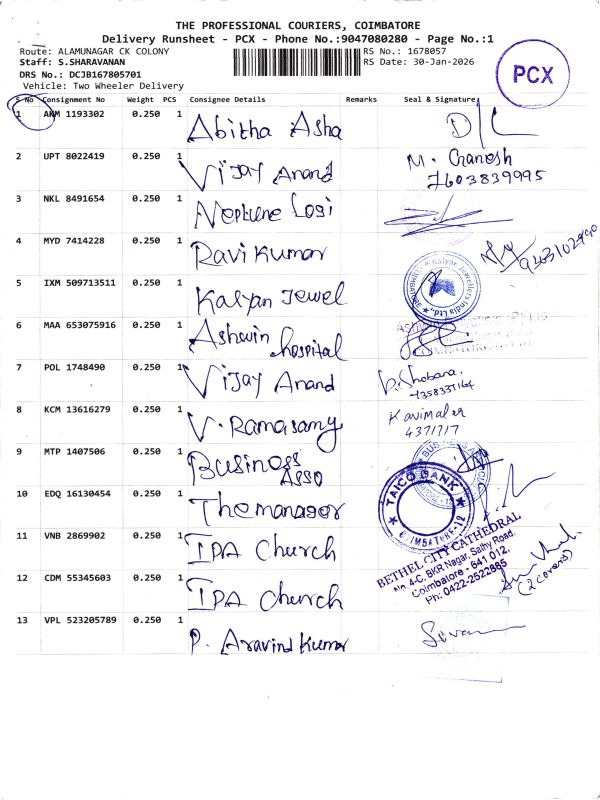 THE PROFESSIONAL COURIERS, COIMBATORE
Delivery Runsheet - PCX - Phone No.:9047080280 - Page No.:1
Route: ALAMUNAGAR CK COLONY
RS No.: 1678057
Staff: S.SHARAVANAN
RS Date: 30-Jan-2026
DRS No.: DCJB167805701
Vehicle: Two Wheeler Delivery
PCX
S No Consignment No Weight PCS Consignee Details Remarks Seal & Signature
1 AKM 1193302 0.250 1 Abitha Asha D/C
2 UPT 8022419 0.250 1 Vijay Anand M. Ganesh
7603839995
3 NKL 8491654 0.250 1 Neptune Logi
4 MYD 7414228 0.250 1 Ravi Kumar
5 IXM 509713511 0.250 1 Kalyan Jewel Kalyan Jewellers India Ltd.
6 MAA 653075916 0.250 1 Ashwin hospital
7 POL 1748490 0.250 1 Vijay Anand
8 KCM 13616279 0.250 1 V. Ramasamy
9 MTP 1407506 0.250 1 Business Asso
10 EDQ 16130454 0.250 1 The manager TAICO BANK
COIMBATORE-12
11 VNB 2869902 0.250 1 IPA Church BETHEL CITY CATHEDRAL
No. 4-C, BKR Nagar, Sathy Road,
Coimbatore - 641 012.
Ph: 0422-2522885
(2 covers)
12 CDM 55345603 0.250 1 IPA Church
13 VPL 523205789 0.250 1 P. Aravind Kumar